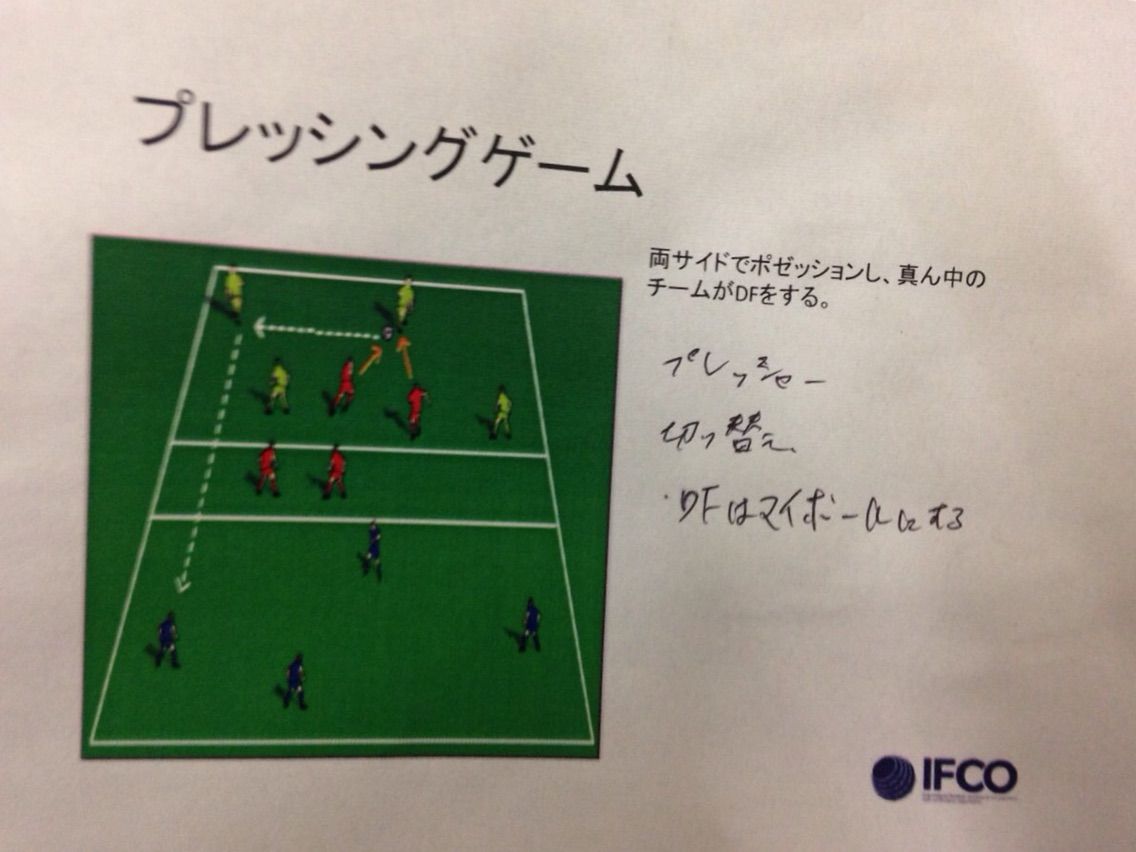 プレッシングゲーム
両サイドでポゼッションし、真ん中の
チームがDFをする。
プレッシャー
切り替え、
・DFはマイボールにする
IFCO